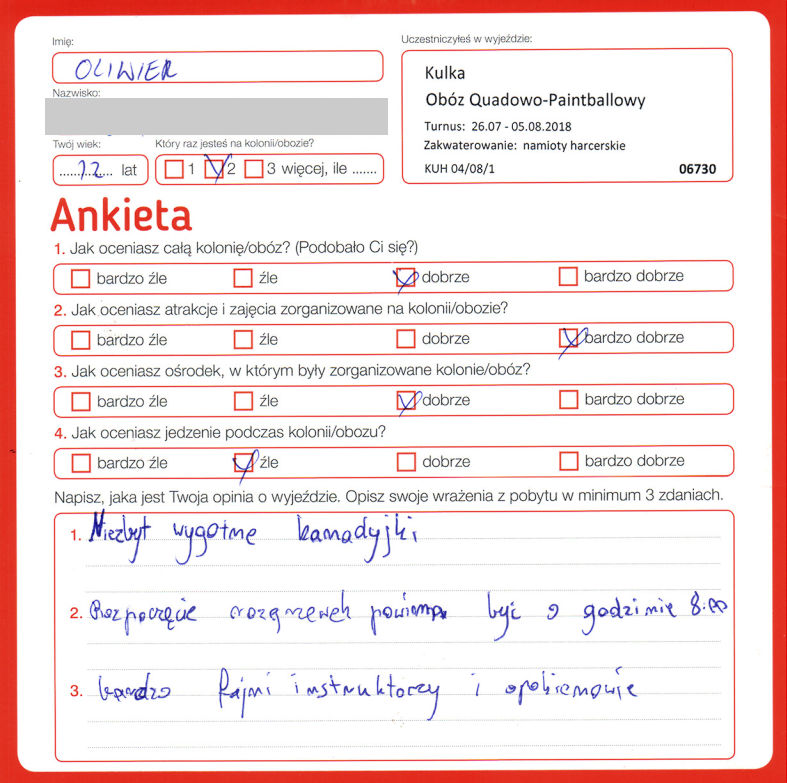 Imię:
OLIWIER
Nazwisko:
Twój wiek:
......12... lat
Który raz jesteś na kolonii/obozie?
1 2 3 więcej, ile .......
Uczestniczyłeś w wyjeździe:
Kulka
Obóz Quadowo-Paintballowy
Turnus: 26.07 - 05.08.2018
Zakwaterowanie: namioty harcerskie
KUH 04/08/1 06730
Ankieta
1. Jak oceniasz całą kolonię/obóz? (Podobało Ci się?)
bardzo źle źle dobrze bardzo dobrze
2. Jak oceniasz atrakcje i zajęcia zorganizowane na kolonii/obozie?
bardzo źle źle dobrze bardzo dobrze
3. Jak oceniasz ośrodek, w którym były zorganizowane kolonie/obóz?
bardzo źle źle dobrze bardzo dobrze
4. Jak oceniasz jedzenie podczas kolonii/obozu?
bardzo źle źle dobrze bardzo dobrze
Napisz, jaka jest Twoja opinia o wyjeździe. Opisz swoje wrażenia z pobytu w minimum 3 zdaniach.
1. Niezbyt wygotne kanadyjki
2. Rozpoczęcie rozgrzewek powinno być o godzinie 8.00
3. bardzo fajni instruktorzy i opiekunowie